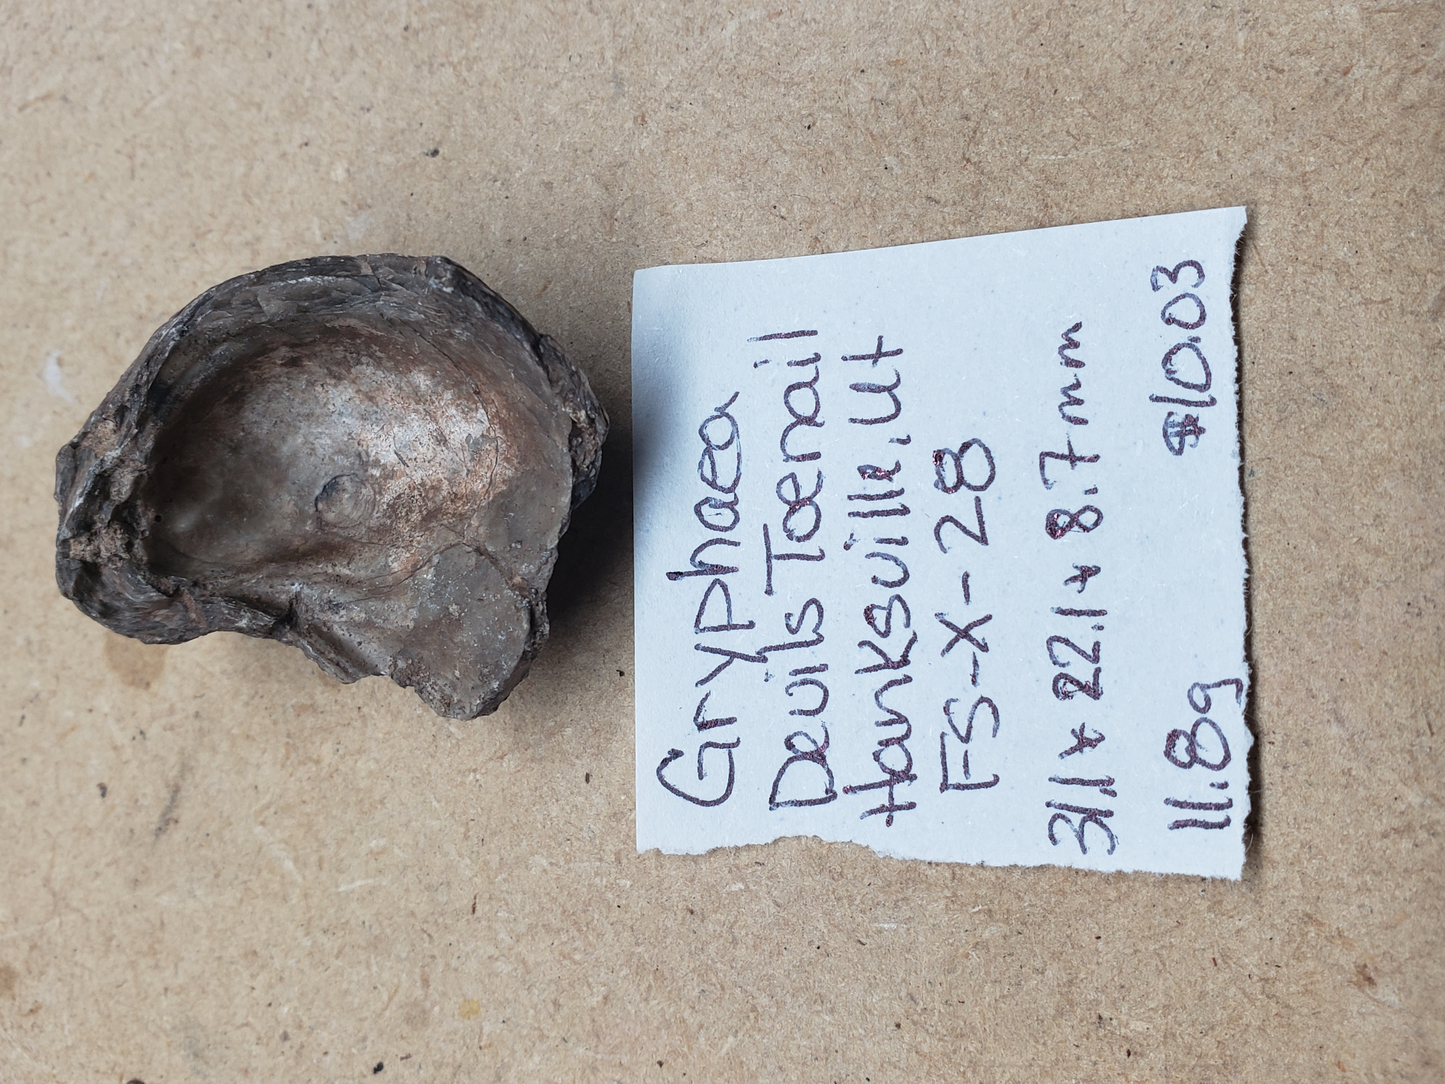 Gryphaea
Devils Toenail
Hanksville, Ut
FS-X-28
31.1 x 22.1 x 8.7mm
11.8g $10.03